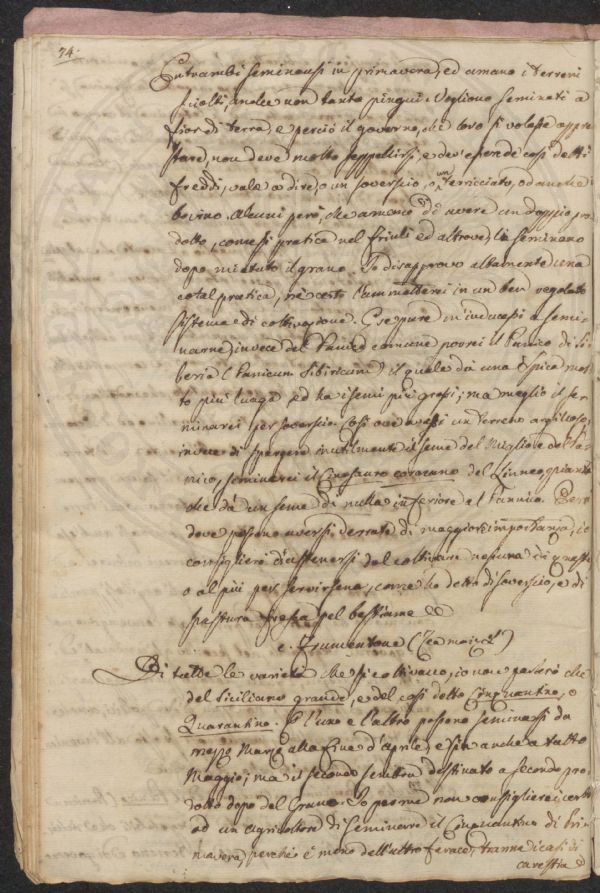 74.
Entrambi seminansi in primavera, ed amano i terreni
sciolti, anche non tanto pingui. Vogliono seminati a
fior di terra, e perciò il governo, che loro si volesse appre
stare, non deve molto seppellirsi, e dev'essere de' così detti
freddi, vale a dire, o un soverscio, o un terricciato, od anche
bovino. Alcuni però, che amano di avere un doppio pro
dotto, come si pratica nel Friuli ed altrove, li seminano
dopo mietuto il grano. Io disapprovo altamente una
cotal pratica, nè certo l'ammetterei in un ben regolato
sistema di coltivazione. E seppure m'inducessi a semi
narne, invece del Panico comune porrei il Panico di Si
beria (Panicum Sibiricum) il quale dà una spica mol
to più lunga ed ha i semi più grossi; ma meglio il se
minerei per soverscio. Così ove avessi un terreno argilloso,
invece di spargere inutilmente il seme del Miglio e del Pa
nico, seminerei il Cinosuro coracano del Linneo, pianta
che dà un seme di nulla inferiore al Pannico. Però
dove possono aversi derrate di maggiore importanza, io
consiglierò d'astenersi dal coltivare nessuna di queste
o al più per servirsene, come ho detto, di soverscio, e di
pastura fresca pel bestiame
e. Frumentone (Zea mais L.)
Di tutte le varietà che si coltivano, io non parlerò che
del Siciliano grande, e del così detto Cinquantino, o
Quarantino. E l'uno e l'altro possono seminarsi da
mezzo Marzo alla fine d'aprile, e sin anche a tutto
Maggio; ma il secondo sembra destinato a secondo pro
dotto dopo del Grano. Io per me non consiglierei certo
ad un agricoltore di seminare il Cinquantino di pri
mavera, perchè è meno dell'altro ferace, tranne i casi di
carestia